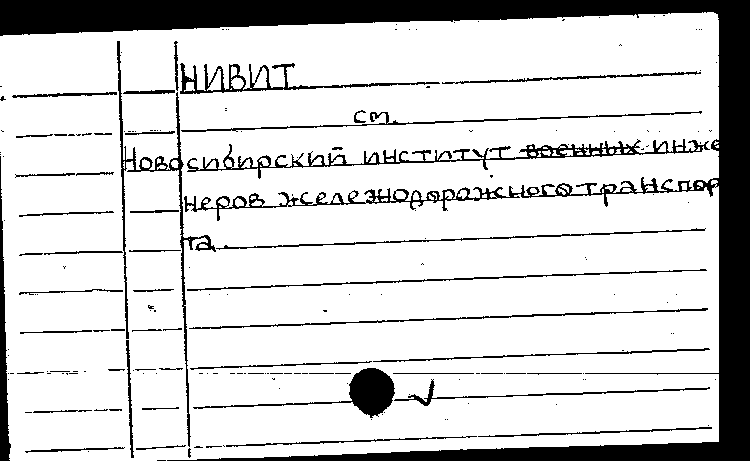 НИВИТ
см.
Новосибирский институт военных инже
неров железнодорожного транспор
та.